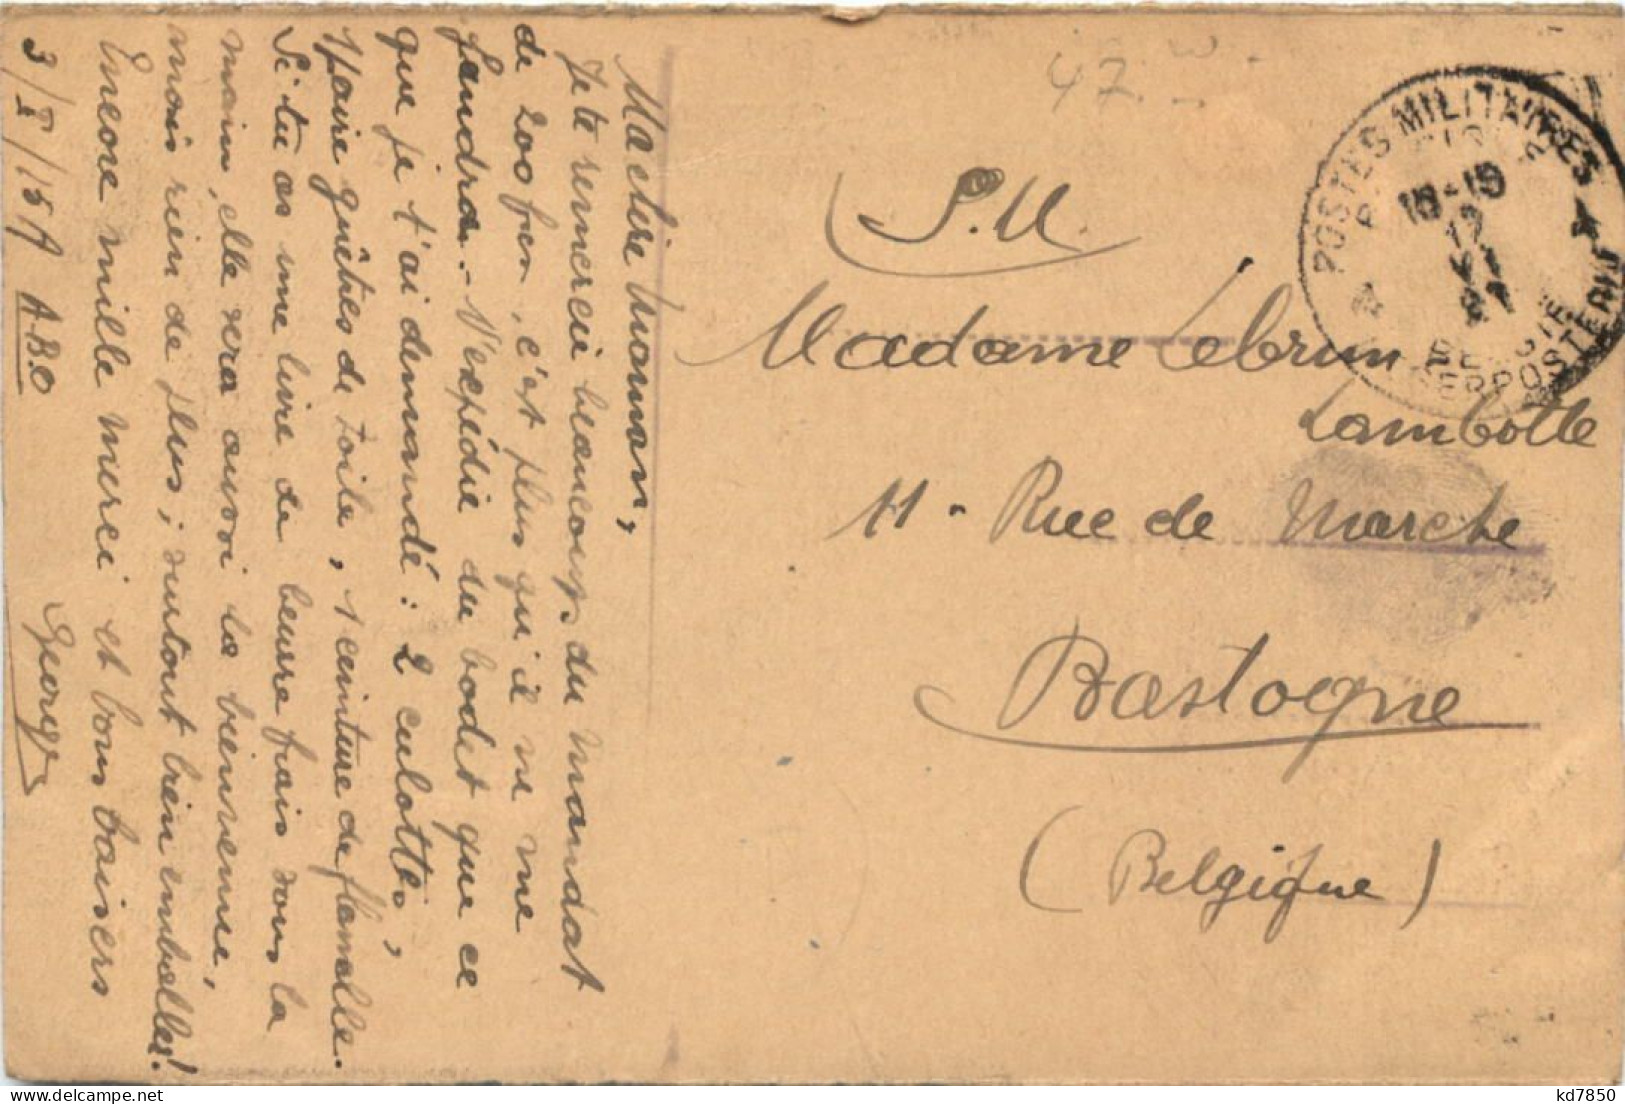 Ma chère Maman,
Je te remercie beaucoup, du mandat
de 200 fr, c'est plus qu'il ne me
faudra. N'expédie du bodet que ce
que je t'ai demandé: 2 culottes,
1 paire guêtres de toile, 1 ceinture de flanelle.
Si tu as une livre de beurre frais sous la
main, elle sera aussi la bienvenue,
mais rien de plus; surtout bien emballer!
Encore mille merci et bons baisers
3/I/15 A.B.O
Georges
47.
S.M.
Madame Lebrun
Lambotte
11 - Rue de Marche
Bastogne
(Belgique)
POSTES MILITAIRES
15-19
12
BELGIE
kd7850